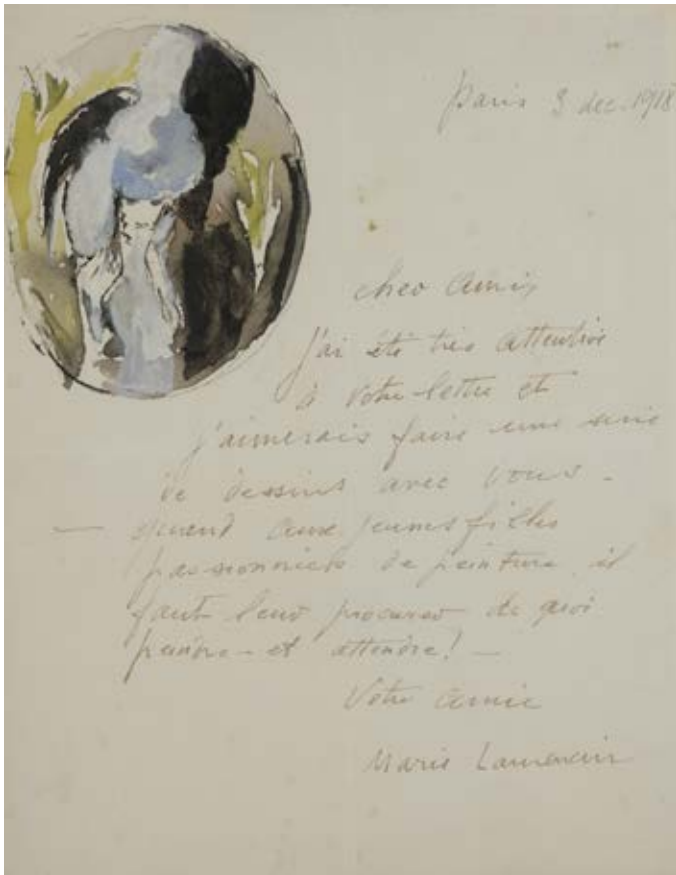 Paris 3 dec. 1918
cher Amis
J'ai été très attentive
à votre lettre et
j'aimerais faire une série
de dessins avec vous -
— quand aux jeunes filles
passionnées de peinture il
faut leur procurer de quoi
peindre - et attendre! -
Votre amie
Marie Laurencin